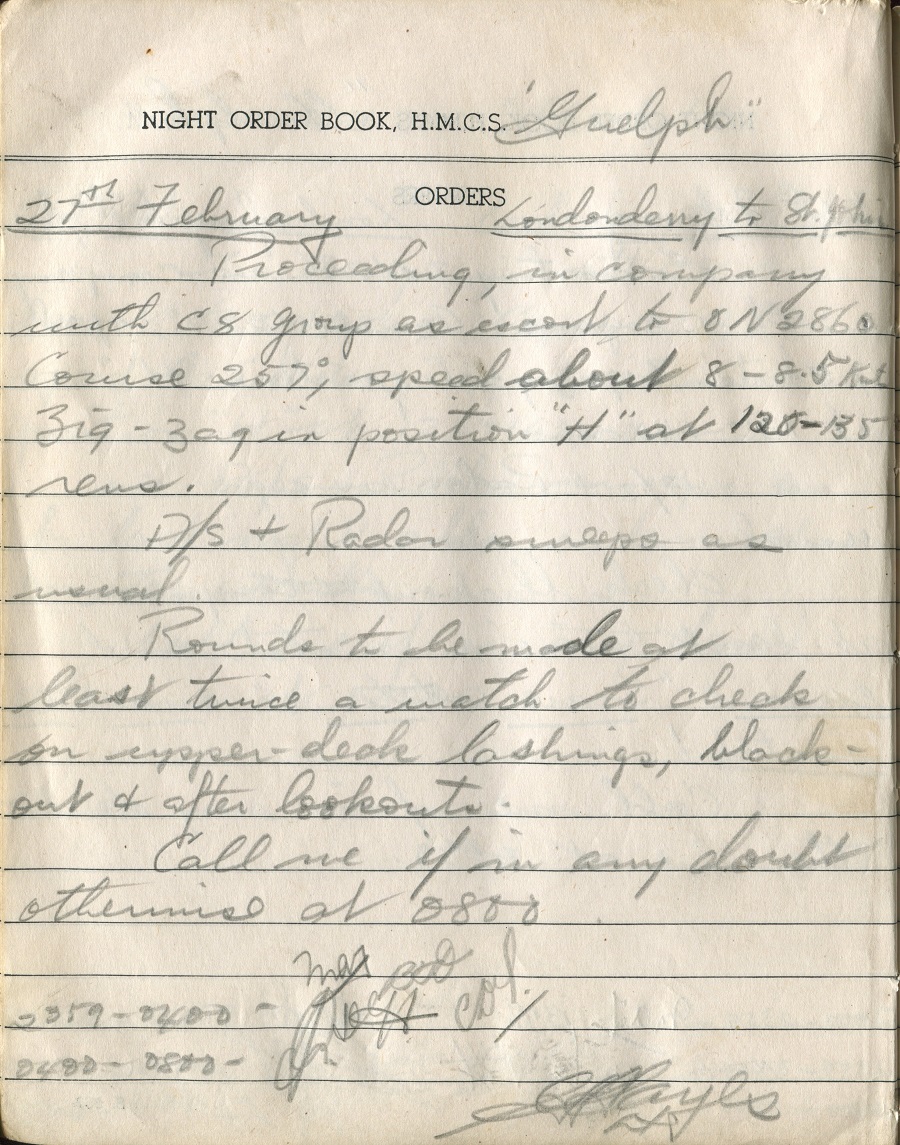 NIGHT ORDER BOOK, H.M.C.S. "Guelph"
ORDERS
27th February Londonderry to St. John
Proceeding, in company
with C8 group as escort to ON 286
Course 257°, speed about 8 - 8.5 Knt
Zig-zag in position "H" at 120-135
revs.
A/S + Radar sweeps as
usual.
Rounds to be made at
least twice a watch to check
on upper-deck lashings, black-
out & after lookouts.
Call me if in any doubt
otherwise at 0800
2359-0400 -
0400-0800-
Hayes